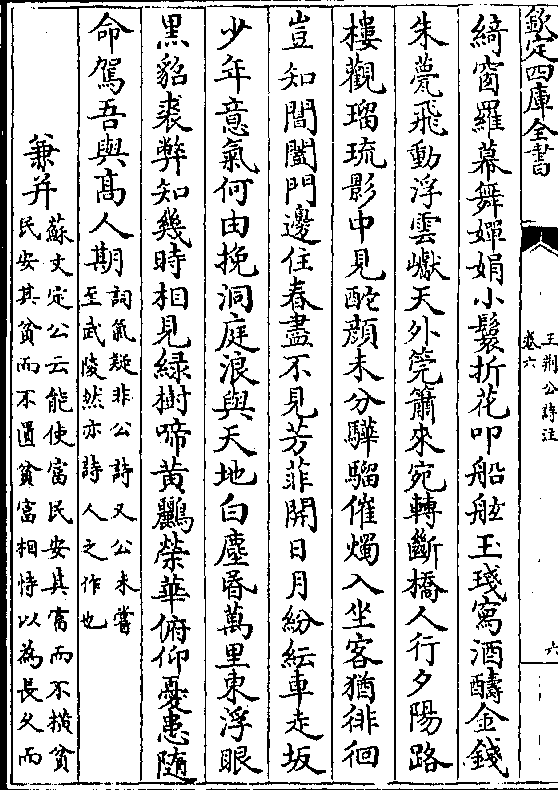 欽定四庫全書
王荆公詩注
卷六
六
綺窗羅幕舞嬋娟小鬟折花叩船舷玉琖寫酒醻金錢
朱甍飛動浮雲巘天外筦簫來宛轉斷橋人行夕陽路
樓觀瑠琉影中見酡顔未分驊騮催燭入坐客猶徘徊
豈知閶闔門邊住春盡不見芳菲開日月紛紜車走坂
少年意氣何由挽洞庭浪與天地白塵昬萬里東浮眼
黒貂裘弊知幾時相見緑樹啼黄鸝榮華俯仰憂患隨
命駕吾與高人期
詞氣疑非公詩又公未嘗
至武陵然亦詩人之作也
兼并
蘇文定公云能使富民安其富而不横貧
民安其貧而不匱貧富相恃以為長久而